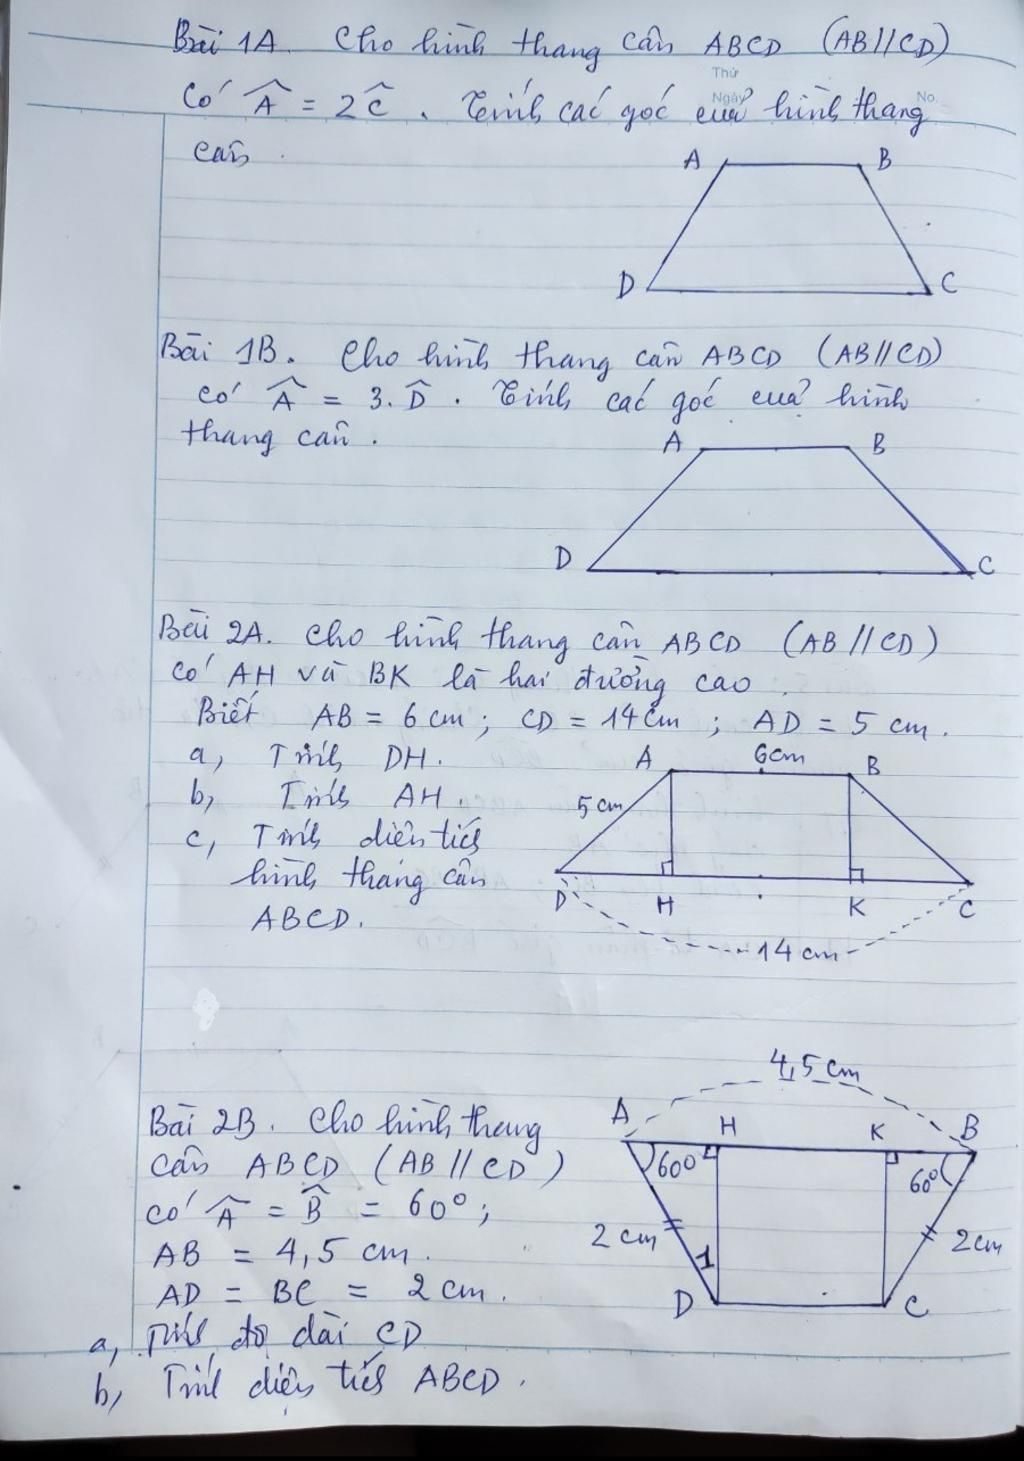 Bài 1A. Cho hình thang cân ABCD (AB//CD)
Thứ
Ngày
No.
Có Â = 2Ĉ. Tính các góc của hình thang
cân.
A B
D C
Bài 1B. Cho hình thang cân ABCD (AB//CD)
có Â = 3.D̂. Tính các góc của hình
thang cân.
A B
D C
Bài 2A. Cho hình thang cân ABCD (AB//CD)
có AH và BK là hai đường cao.
Biết AB = 6 cm; CD = 14 cm; AD = 5 cm.
a, Tính DH.
b, Tính AH.
c, Tính diện tích
hình thang cân
ABCD.
A 6cm B
5 cm
D H K C
14 cm
Bài 2B. Cho hình thang
cân ABCD (AB//CD)
có Â = B̂ = 60°;
AB = 4,5 cm.
AD = BC = 2 cm.
a, Tính độ dài CD
b, Tính diện tích ABCD.
4,5 cm
A H K B
60° 60°
2 cm 1 2cm
D C